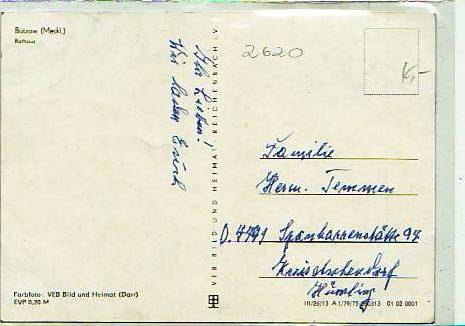 Bützow (Meckl.)
Rathaus
2620
Ihr Lieben!
Wir laden Euch
VEB BILD UND HEIMAT REICHENBACH i. V.
Familie
Herm. Temmen
Spankarrenstätte 97
Hümling
Farbfoto: VEB Bild und Heimat (Darr)
EVP 0,20 M
III/26/13 A 1/79/75 01 02 0001